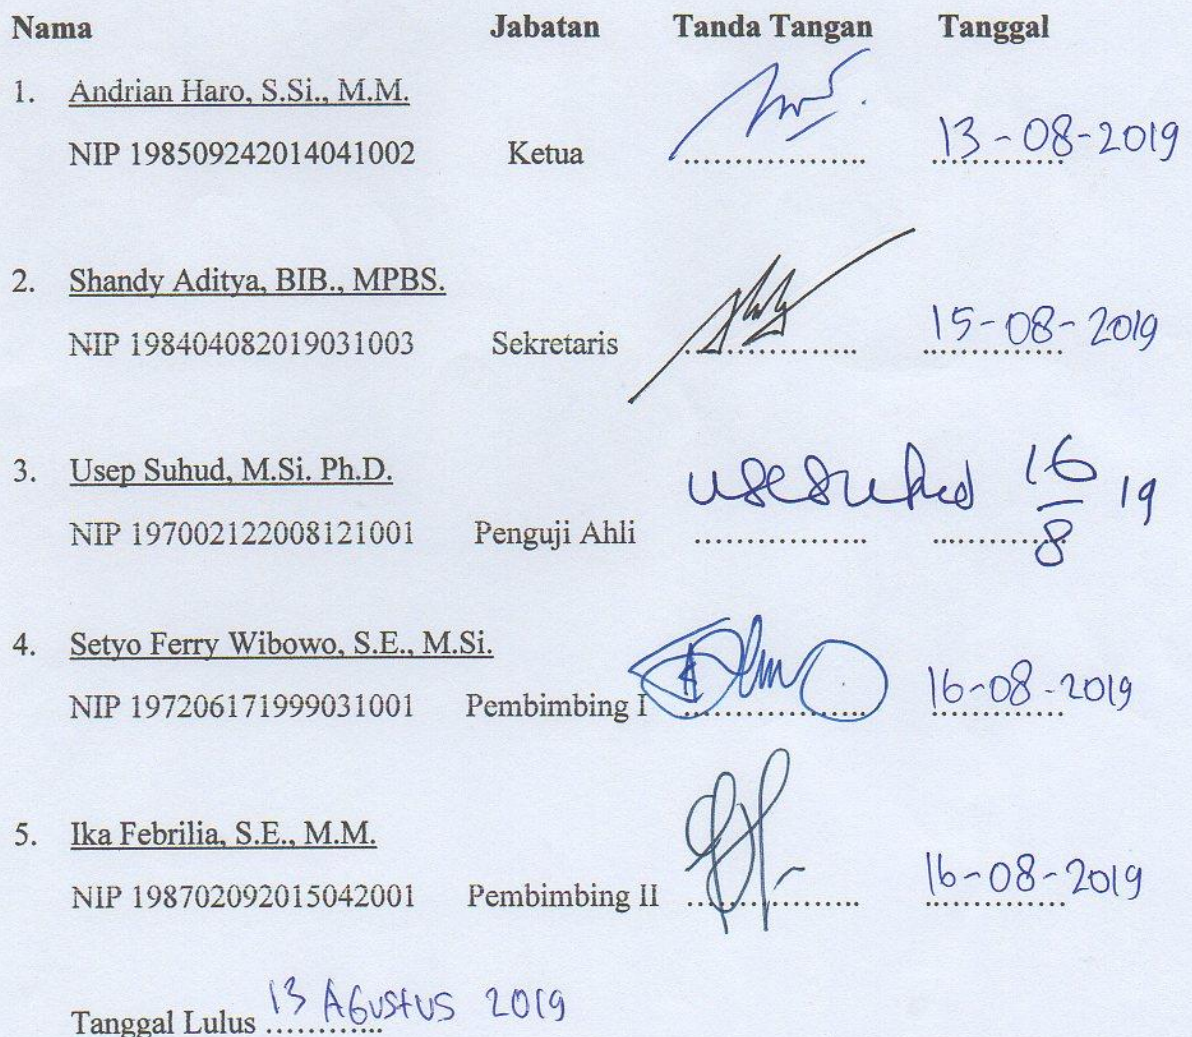 Nama Jabatan Tanda Tangan Tanggal
1. Andrian Haro, S.Si., M.M.
NIP 198509242014041002 Ketua .................. 13-08-2019
2. Shandy Aditya, BIB., MPBS.
NIP 198404082019031003 Sekretaris .................. 15-08-2019
3. Usep Suhud, M.Si. Ph.D.
NIP 197002122008121001 Penguji Ahli .................. 16/8 19
4. Setyo Ferry Wibowo, S.E., M.Si.
NIP 197206171999031001 Pembimbing I .................. 16-08-2019
5. Ika Febrilia, S.E., M.M.
NIP 198702092015042001 Pembimbing II .................. 16-08-2019
Tanggal Lulus 13 AGUSTUS 2019